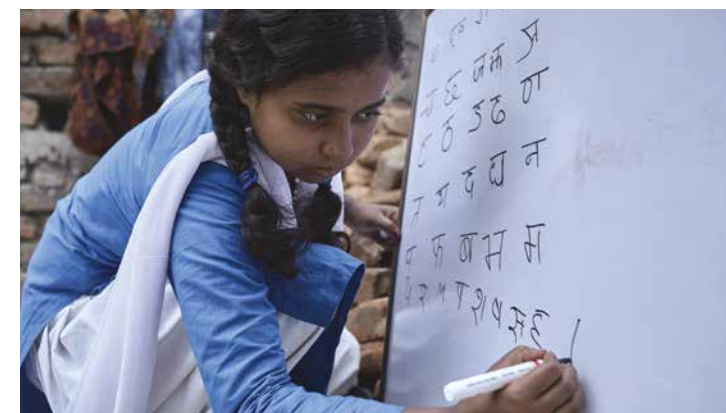 च छ ज झ ञ
ट ठ ड ढ ण
त थ द ध न
प फ ब भ म
य र ल व श ष स ह